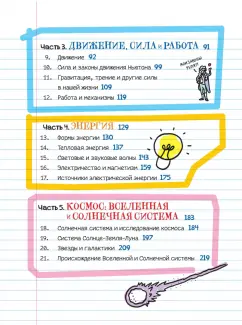 Часть 3. ДВИЖЕНИЕ, СИЛА И РАБОТА 91
9. Движение 92
10. Сила и законы движения Ньютона 99
11. Гравитация, трение и другие силы
в нашей жизни 109
12. Работа и механизмы 119
Часть 4. ЭНЕРГИЯ 129
13. Формы энергии 130
14. Тепловая энергия 137
15. Световые и звуковые волны 143
16. Электричество и магнетизм 159
17. Источники электрической энергии 175
Часть 5. КОСМОС: ВСЕЛЕННАЯ
И СОЛНЕЧНАЯ СИСТЕМА 183
18. Солнечная система и исследование космоса 184
19. Система Солнце-Земля-Луна 197
20. Звезды и галактики 209
21. Происхождение Вселенной и Солнечной системы 219